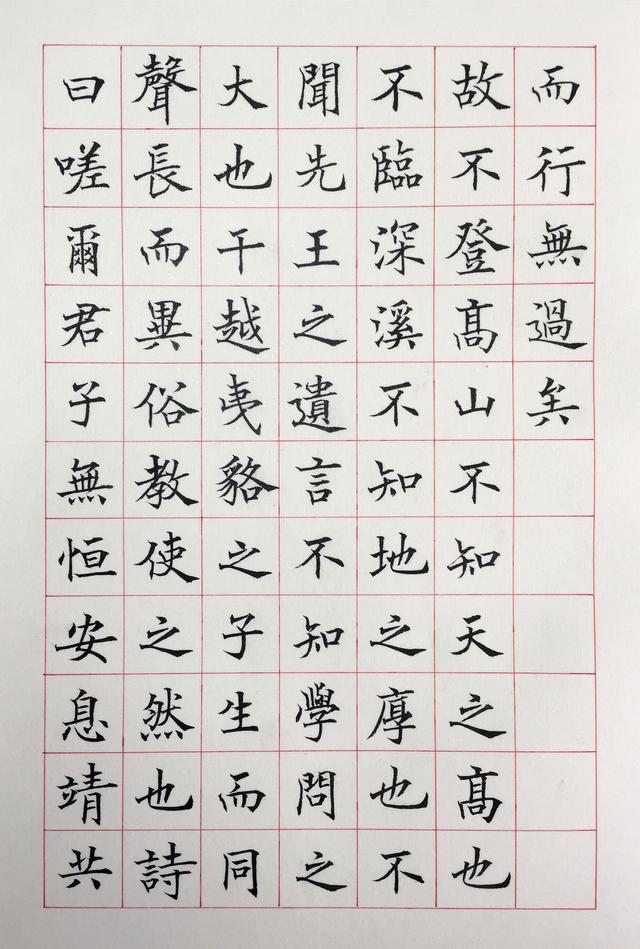 而行無過矣
故不登高山不知天之高也
不臨深溪不知地之厚也不
聞先王之遺言不知學問之
大也干越夷貉之子生而同
聲長而異俗教使之然也詩
曰嗟爾君子無恒安息靖共